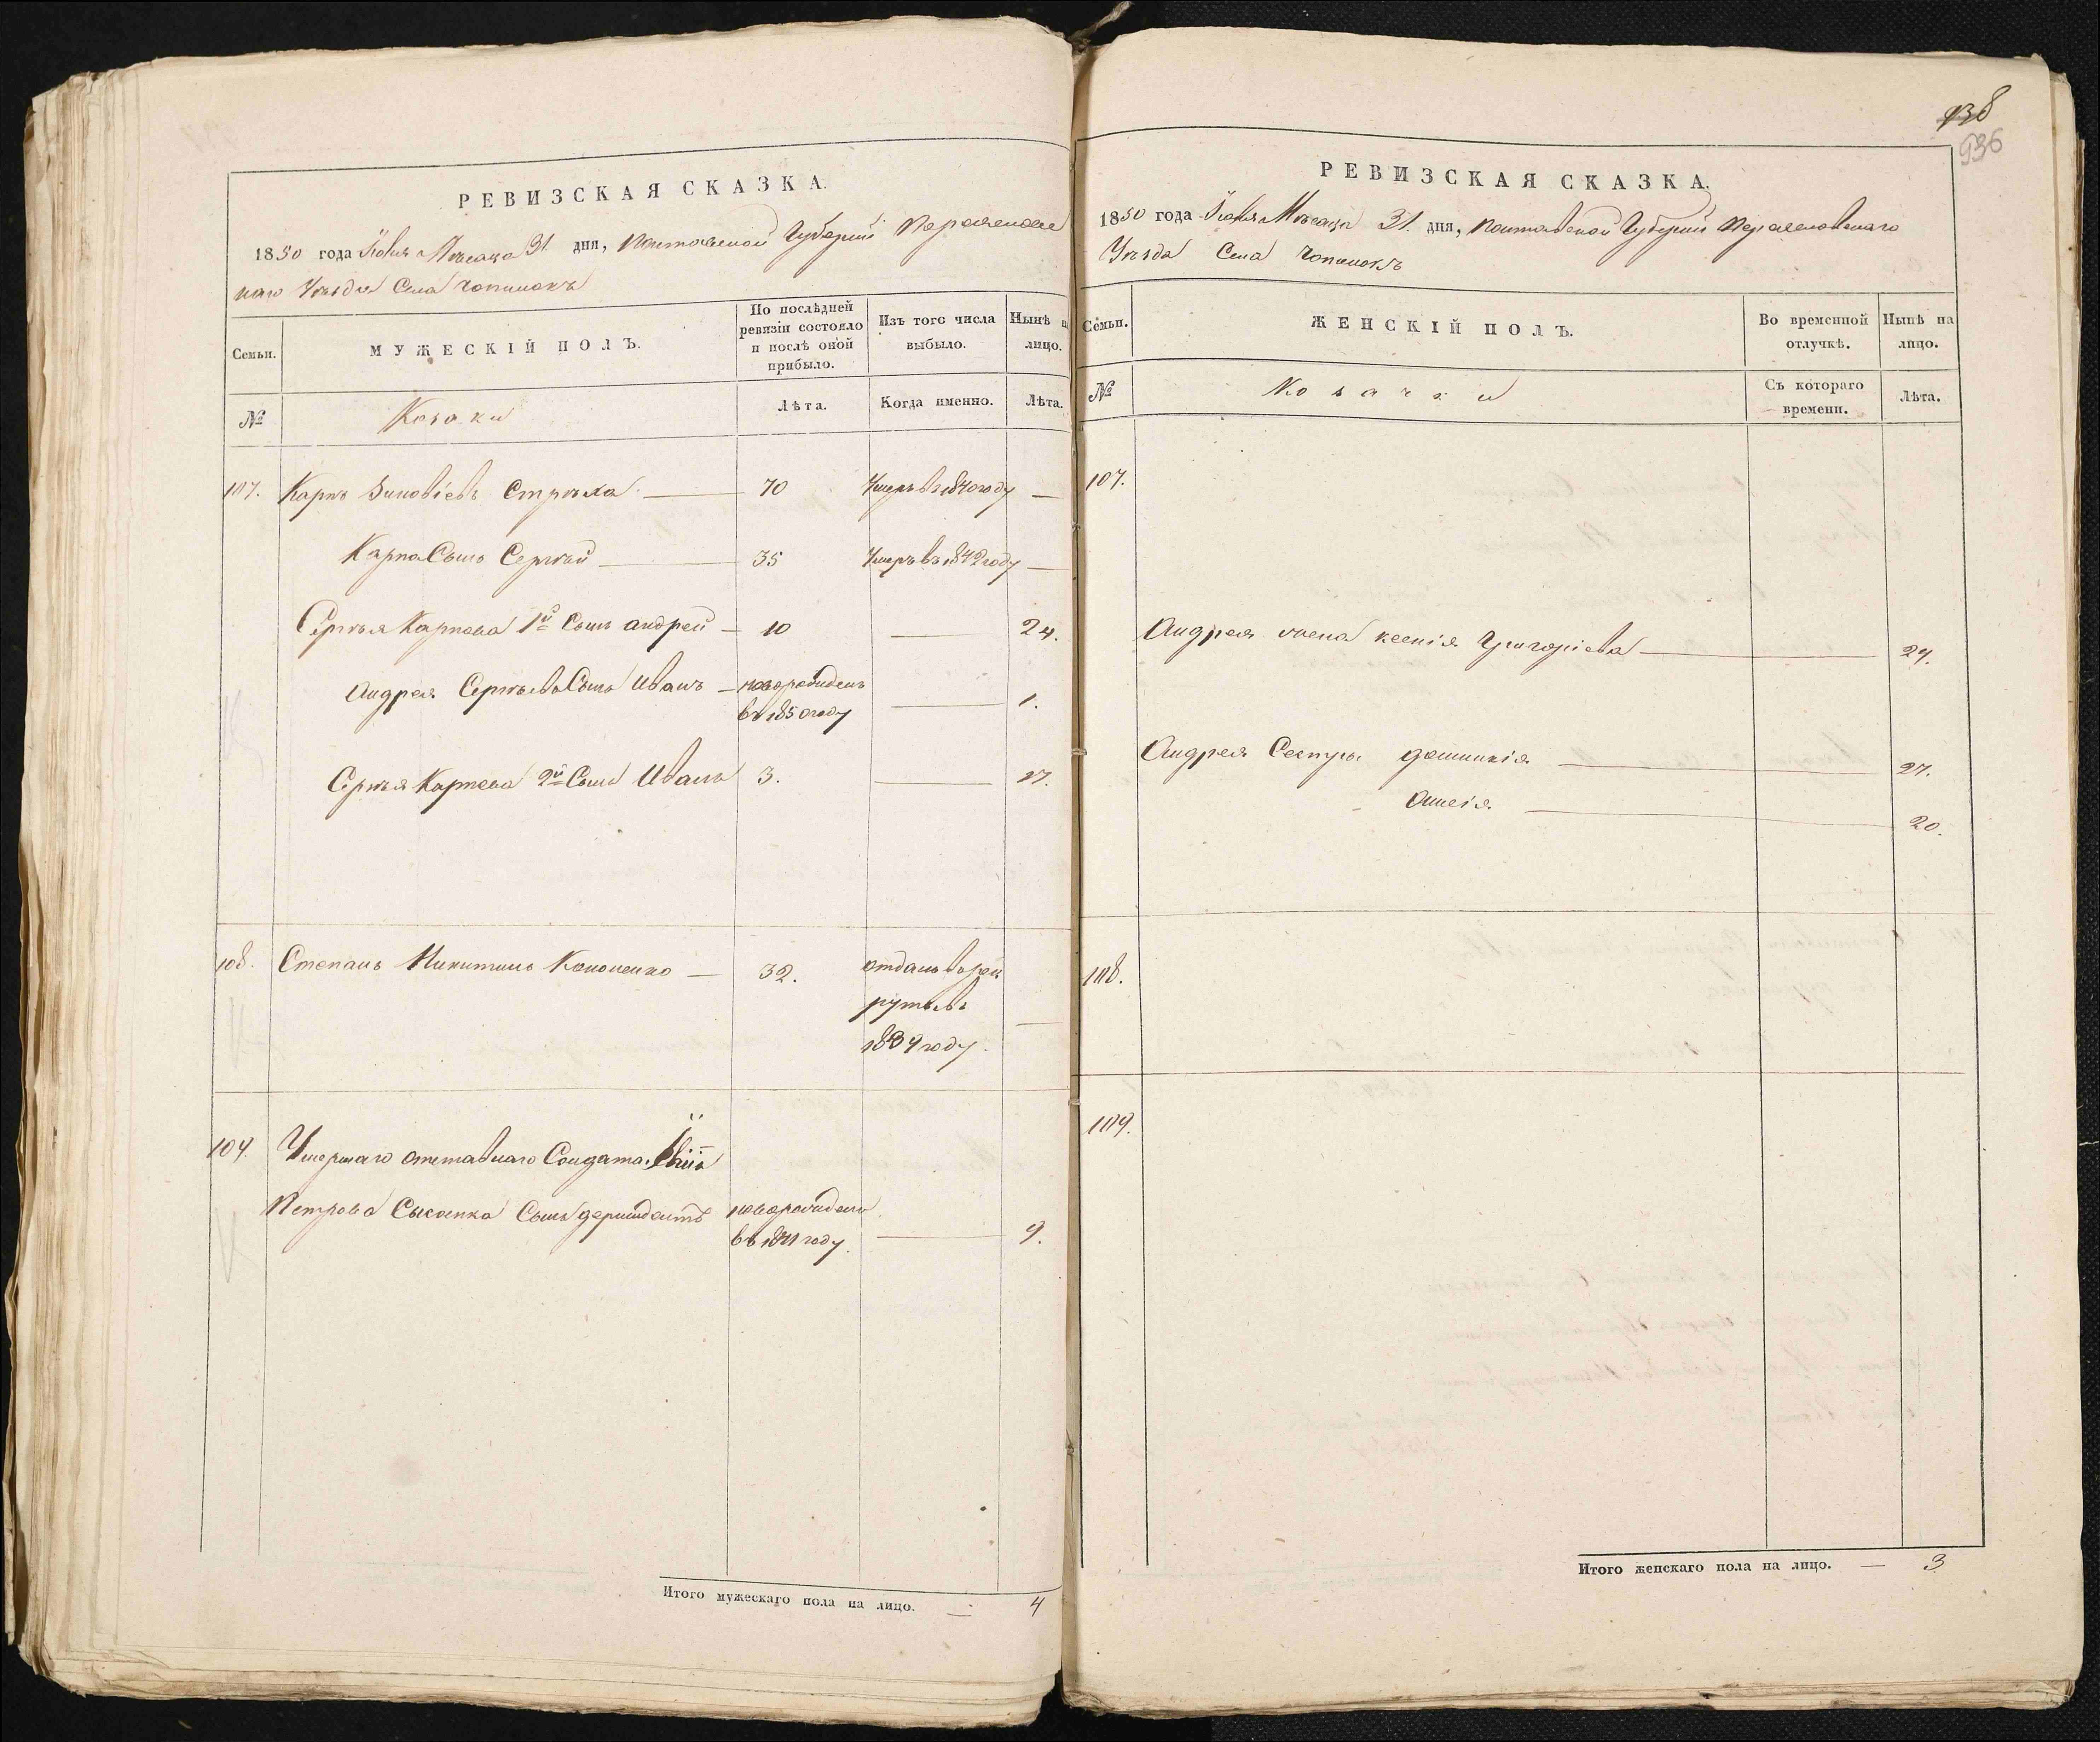 РЕВИЗСКАЯ СКАЗКА.
1850 года Іюля Мѣсяца 31 дня, Полтавской Губерніи Переяслов
каго Уѣзда Села
Семьи.
МУЖЕСКІЙ ПОЛЪ.
По послѣдней ревизіи состояло и послѣ оной прибыло.
Изъ того числа выбыло.
Нынѣ н лицо.
№
Козаки
Лѣта.
Когда именно.
Лѣта.
107. Карпъ Зиновіевъ Стрѣха 70 Умеръ въ 1840 году —
Карпа Сынъ Сергѣй 35 Умеръ въ 1842 году —
Сергѣя Карпова 1й Сынъ андрей 10 — 24.
Андрея Сергѣева Сынъ Иванъ новорожденъ
въ 1850 году — 1.
Сергѣя Карпова 2й Сынъ Иванъ 3. — 17.
108. Степанъ Никитинъ Кононенко 32. отданъ въ рек
руты въ
1834 году. —
109. Умершаго отставнаго Солдата
Петрова Сынъ новорожденъ
въ 1841 году. — 9.
Итого мужескаго пола на лицо. — 4
138
936
РЕВИЗСКАЯ СКАЗКА.
1850 года Іюля Мѣсяца 31. дня, Полтавской Губерніи Переясловскаго
Уѣзда Села
Семьи.
ЖЕНСКІЙ ПОЛЪ.
Во временной отлучкѣ.
Нынѣ на лицо.
№
Козачки
Съ котораго времени.
Лѣта.
107.
Андрея жена ксенія Григоріева — 24.
Андрея Сестры домникія — 27.
— 20.
108.
109.
Итого женскаго пола на лицо. — 3